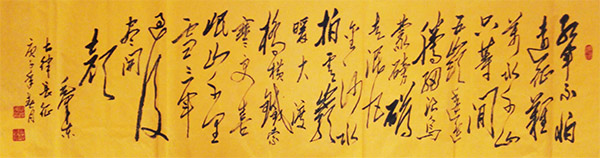 红军不怕
远征難
万水千山
只等闲
五嶺逶迤
腾细浪乌
蒙磅礴
走泥丸
金沙水
拍雲崖
暖大渡
橋横鐵索
寒更喜
岷山千里
雪三军
过后
尽开
颜
毛泽东
七律长征
庚子年